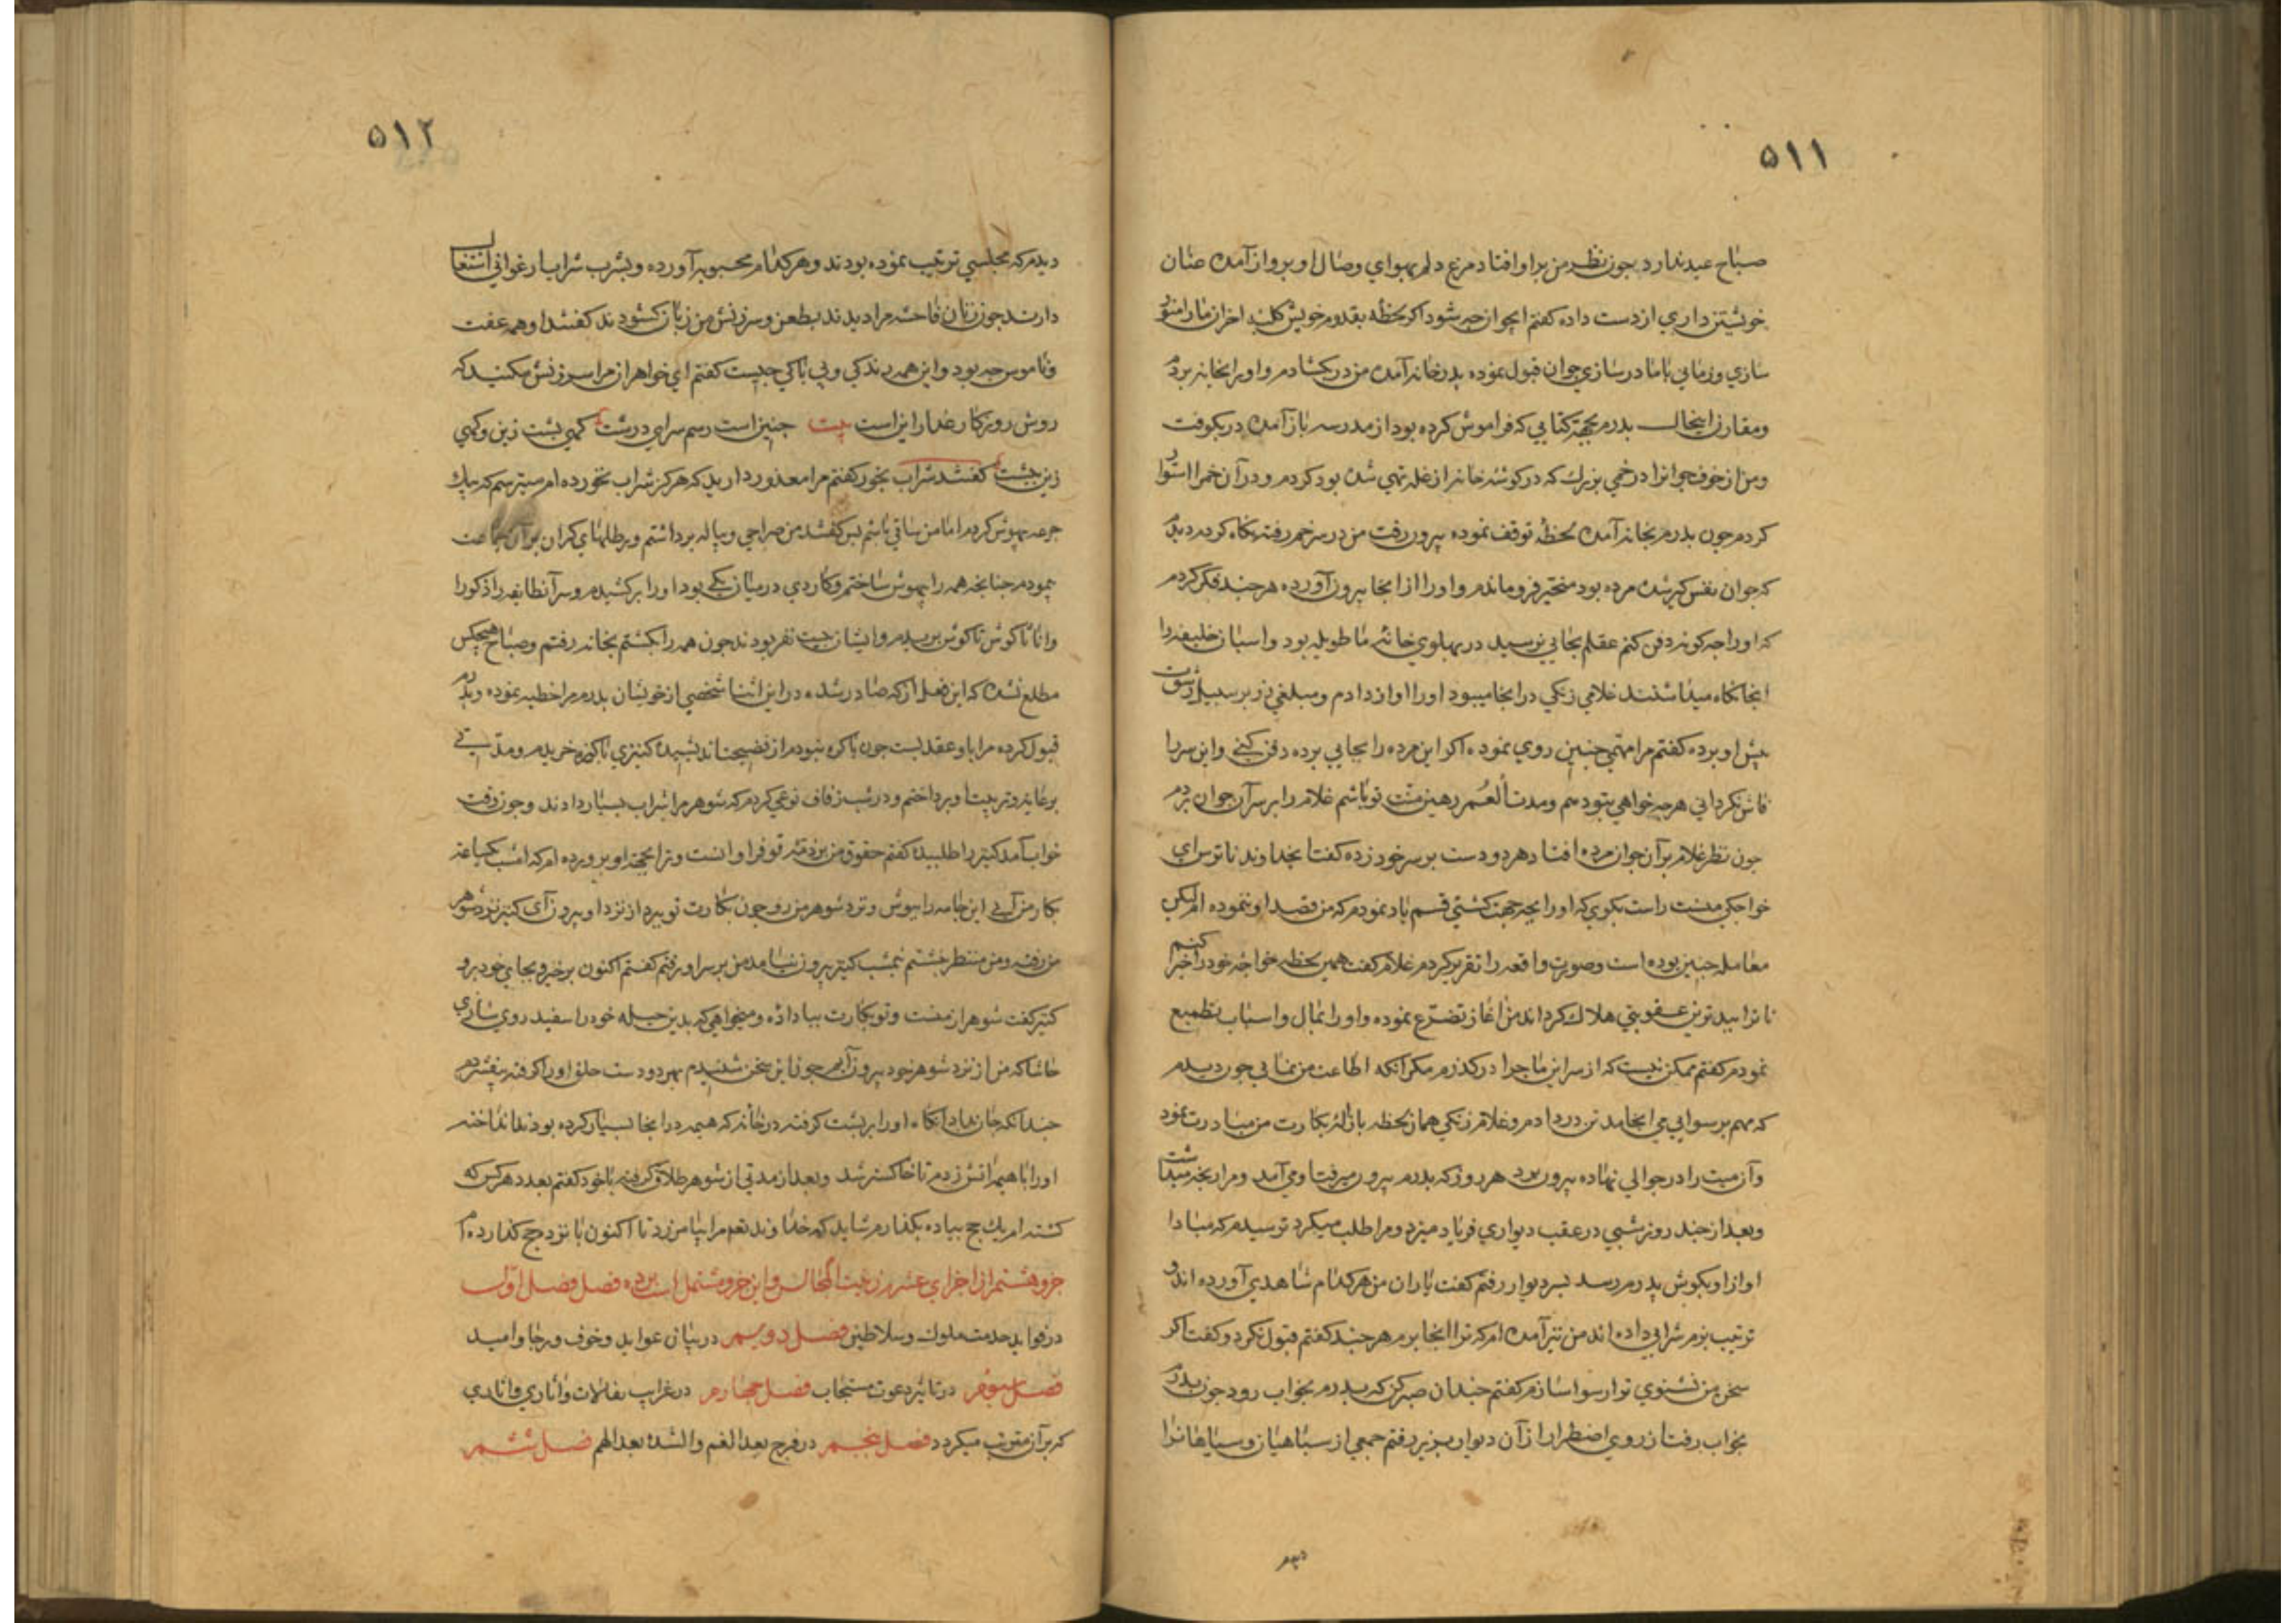 ۵۱۱
صباح عید ندارد چون نظر من بر او افتاد مرغ دلم بهوای وصال او بپرواز آمده عنان
خویشتن داری از دست داده گفتم ایجوان چه شود اکر لحظه بقدوم خویش کلبه احزان مارا منور
سازی و زمانی باما در سازی جوان قبول نموده بدرخانه آمده من در بکشادم و اورا بخانه بردم
و مقارن اینحال بدرم بجهة کتابی که فراموش کرده بود از مدرسه باز آمده در بکوفت
و من از خوف جوانرا در خمی بزرك که در کوشه خانه از غله تهی شده بود کردم و در آن خمرا استوار
کردم چون بدرم بخانه آمده لحظهٔ توقف نموده بیرون رفت من در سر خم رفته نکاه کردم دیدم
که جوان نفس کیر شده مرده بود متحیر فرو ماندم و اورا از انجا بیرون آورده هر چند فکر کردم
که اورا چه کونه دفن کنم عقلم بجایی نرسید در بهلوی خانهٔ ما طویله بود و اسبان خلیفه را
انجا نکاه میداشتند غلامی زنکی در انجا میبود اورا اواز دادم و مبلغی زر بر سبیل رشوت
بیش او برده کفتم مرا مهمی چنین روی نموده اکر این مرده را بجایی برده دفن کنی و این سر را
فاش نکردانی هر چه خواهی بتو دهم و مدت العمر رهین منت تو باشم غلام را بر سر آن جوان بردم
چون نظر غلام بر آن جوان مرده افتاد هر دو دست بر سر خود زده کفتا بخداوند ناترس ای
خواجکی منست راست بکوی که اورا بچه جهت کشتی قسم یاد نمودم که من قصد او ننموده ام لیکن
معامله چنین بوده است و صورت واقعه را تقریر کردم غلام کفت همین لحظه خواجه خود را خبر کنم
تا ترا ببدترین عقوبتی هلاك کرداند من اغاز تضرع نموده و اورا بمال و اسباب تطمیع
نمودم کفتم ممکن نیست که از سر این ماجرا درکذرم مکر انکه اطاعت من نمایی چون دیدم
که مهم برسوایی می انجامد تن در دادم و غلام زنکی همان لحظه بازالهٔ بکارت من مبادرت نمود
و آن میت را در جوالی نهاده بیرون برد هر روز که بدرم بیرون میرفت او می آمد و مرا رنجه میداشت
و بعد از چند روز شبی در عقب دیواری فریاد میزد و مرا طلب میکرد ترسیدم که مبادا
اواز او بکوش پدرم رسد بسر دیوار رفتم کفت یاران من هر کدام شاهدی آورده اند و
ترتیب بزم شرابی داده اند من نیز آمده ام که ترا انجا برم هر چند کفتم قبول نکرد و کفت اکر
سخن من نشنوی ترا رسوا سازم کفتم چندان صبر کن که بدرم بخواب رود چون بدرم
بخواب رفت از روی اضطرار از آن دیوار بزیر رفتم جمعی از سباهیان و سیاهانرا
دیدم
۵۱۲
دیدم که مجلسی ترتیب نموده بودند و هر کدام محبوبه آورده و بشرب شراب ارغوانی اشتغال
دارند چون زنان فاحشه مرا دیدند بطعن و سرزنش من زبان کشودند کفتند او همه عفت
و ناموس چه بود و این همه رندکی و بی باکی چیست کفتم ای خواهران مرا سرزنش مکنید که
روش روزکار غدار این است بیت چنین است رسم سرای درشت کهی بشت زین و کهی
زین بشت کفتند شراب بخور کفتم مرا معذور دارید که هرکز شراب نخورده ام میترسم که بیك
جرعه بیهوش کردم اما من ساقی باشم بس کفتند من صراحی و بیاله برداشتم و برطلهای کران بر آن جماعت
بیمودم چنانچه همه را بیهوش ساختم و کاردی در میان یکی بود اورا برکشیدم و سر آنطایفه را ذکورا
و اناثا کوش تا کوش بریدم و ایشان بیست نفر بودند چون همه را بکشتم بخانه رفتم و صباح هیچکس
مطلع نشده که این فعل از که صادر شده در این اثنا شخصی از خویشان بدرم مرا خطبه نموده و بدرم
قبول کرده مرا با و عقد بست چون باکره نبودم از فضیحت اندیشیده کنیزی باکره خریدم و مدتی
برعایت و تربیت او برداختم و در شب زفاف نوعی کردم که شوهر مرا شراب بسیار دادند و چون وقت
خواب آمد کنیز را طلبیده کفتم حقوق من بر ذمت تو فراوانست و ترا بجهة او برورده ام که امشب یکساعت
بکار من آیی این جامه را ببوش و نزد شوهر من رو چون بکارت تو ببرد از نزد او بیرون آی کنیز نزد شوهر
من رفت و من منتظر نشستم نیمشب کنیز بیرون نیامد من بر سر او رفتم کفتم اکنون برخیز و بجای خود برو
کنیز کفت شوهر از منست و تو بکارت بباد داده و میخواهی که بدین حیله خود را سفید روی سازی
حاشا که من از نزد شوهر خود بیرون آیم چون این سخن شنیدم بهر دو دست حلق اورا کرفته بیفشردم
چندانکه جان بداد انکاه اورا بر بشت کرفته در خانه که هیمه در انجا بسیار کرده بودند انداخته
اورا با هیمه آتش زدم تا خاکستر شد و بعد از مدتی از شوهر طلاق کرفته با خود کفتم بعدد هر کس که
کشته ام یك حج بیاده بکذارم شاید که خداوند تع مرا بیامرزد تا اکنون بانزده حج کذارده ام
جزو هشتم از اجزای عشره زینت المجالس و این جزو مشتمل است بر ده فصل فصل اول
در فواید خدمت ملوك و سلاطین فصل دویم در بیان عواید و خوف و رجا و امید
فصل سیوم در تاثیر دعوت مستجاب فصل چهارم در غرایب تفالات و آثاری
که بر آن مترتب میکردد فصل پنجم در فرج بعد الغم و الشدة بعد الهم فصل ششم